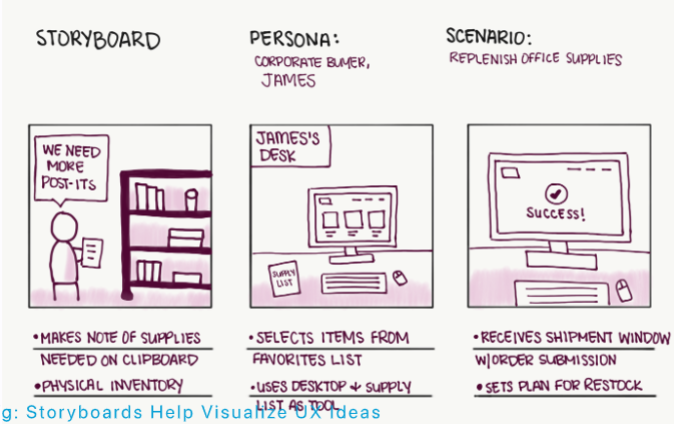 STORYBOARD
PERSONA:
CORPORATE BUYER,
JAMES
SCENARIO:
REPLENISH OFFICE SUPPLIES
WE NEED
MORE
POST-ITS
JAMES'S
DESK
SUPPLY
LIST
SUCCESS!
•MAKES NOTE OF SUPPLIES
NEEDED ON CLIPBOARD
•PHYSICAL INVENTORY
•SELECTS ITEMS FROM
FAVORITES LIST
•USES DESKTOP + SUPPLY
LIST AS TOOL
•RECEIVES SHIPMENT WINDOW
W/ORDER SUBMISSION
•SETS PLAN FOR RESTOCK
g: Storyboards Help Visualize UX Ideas